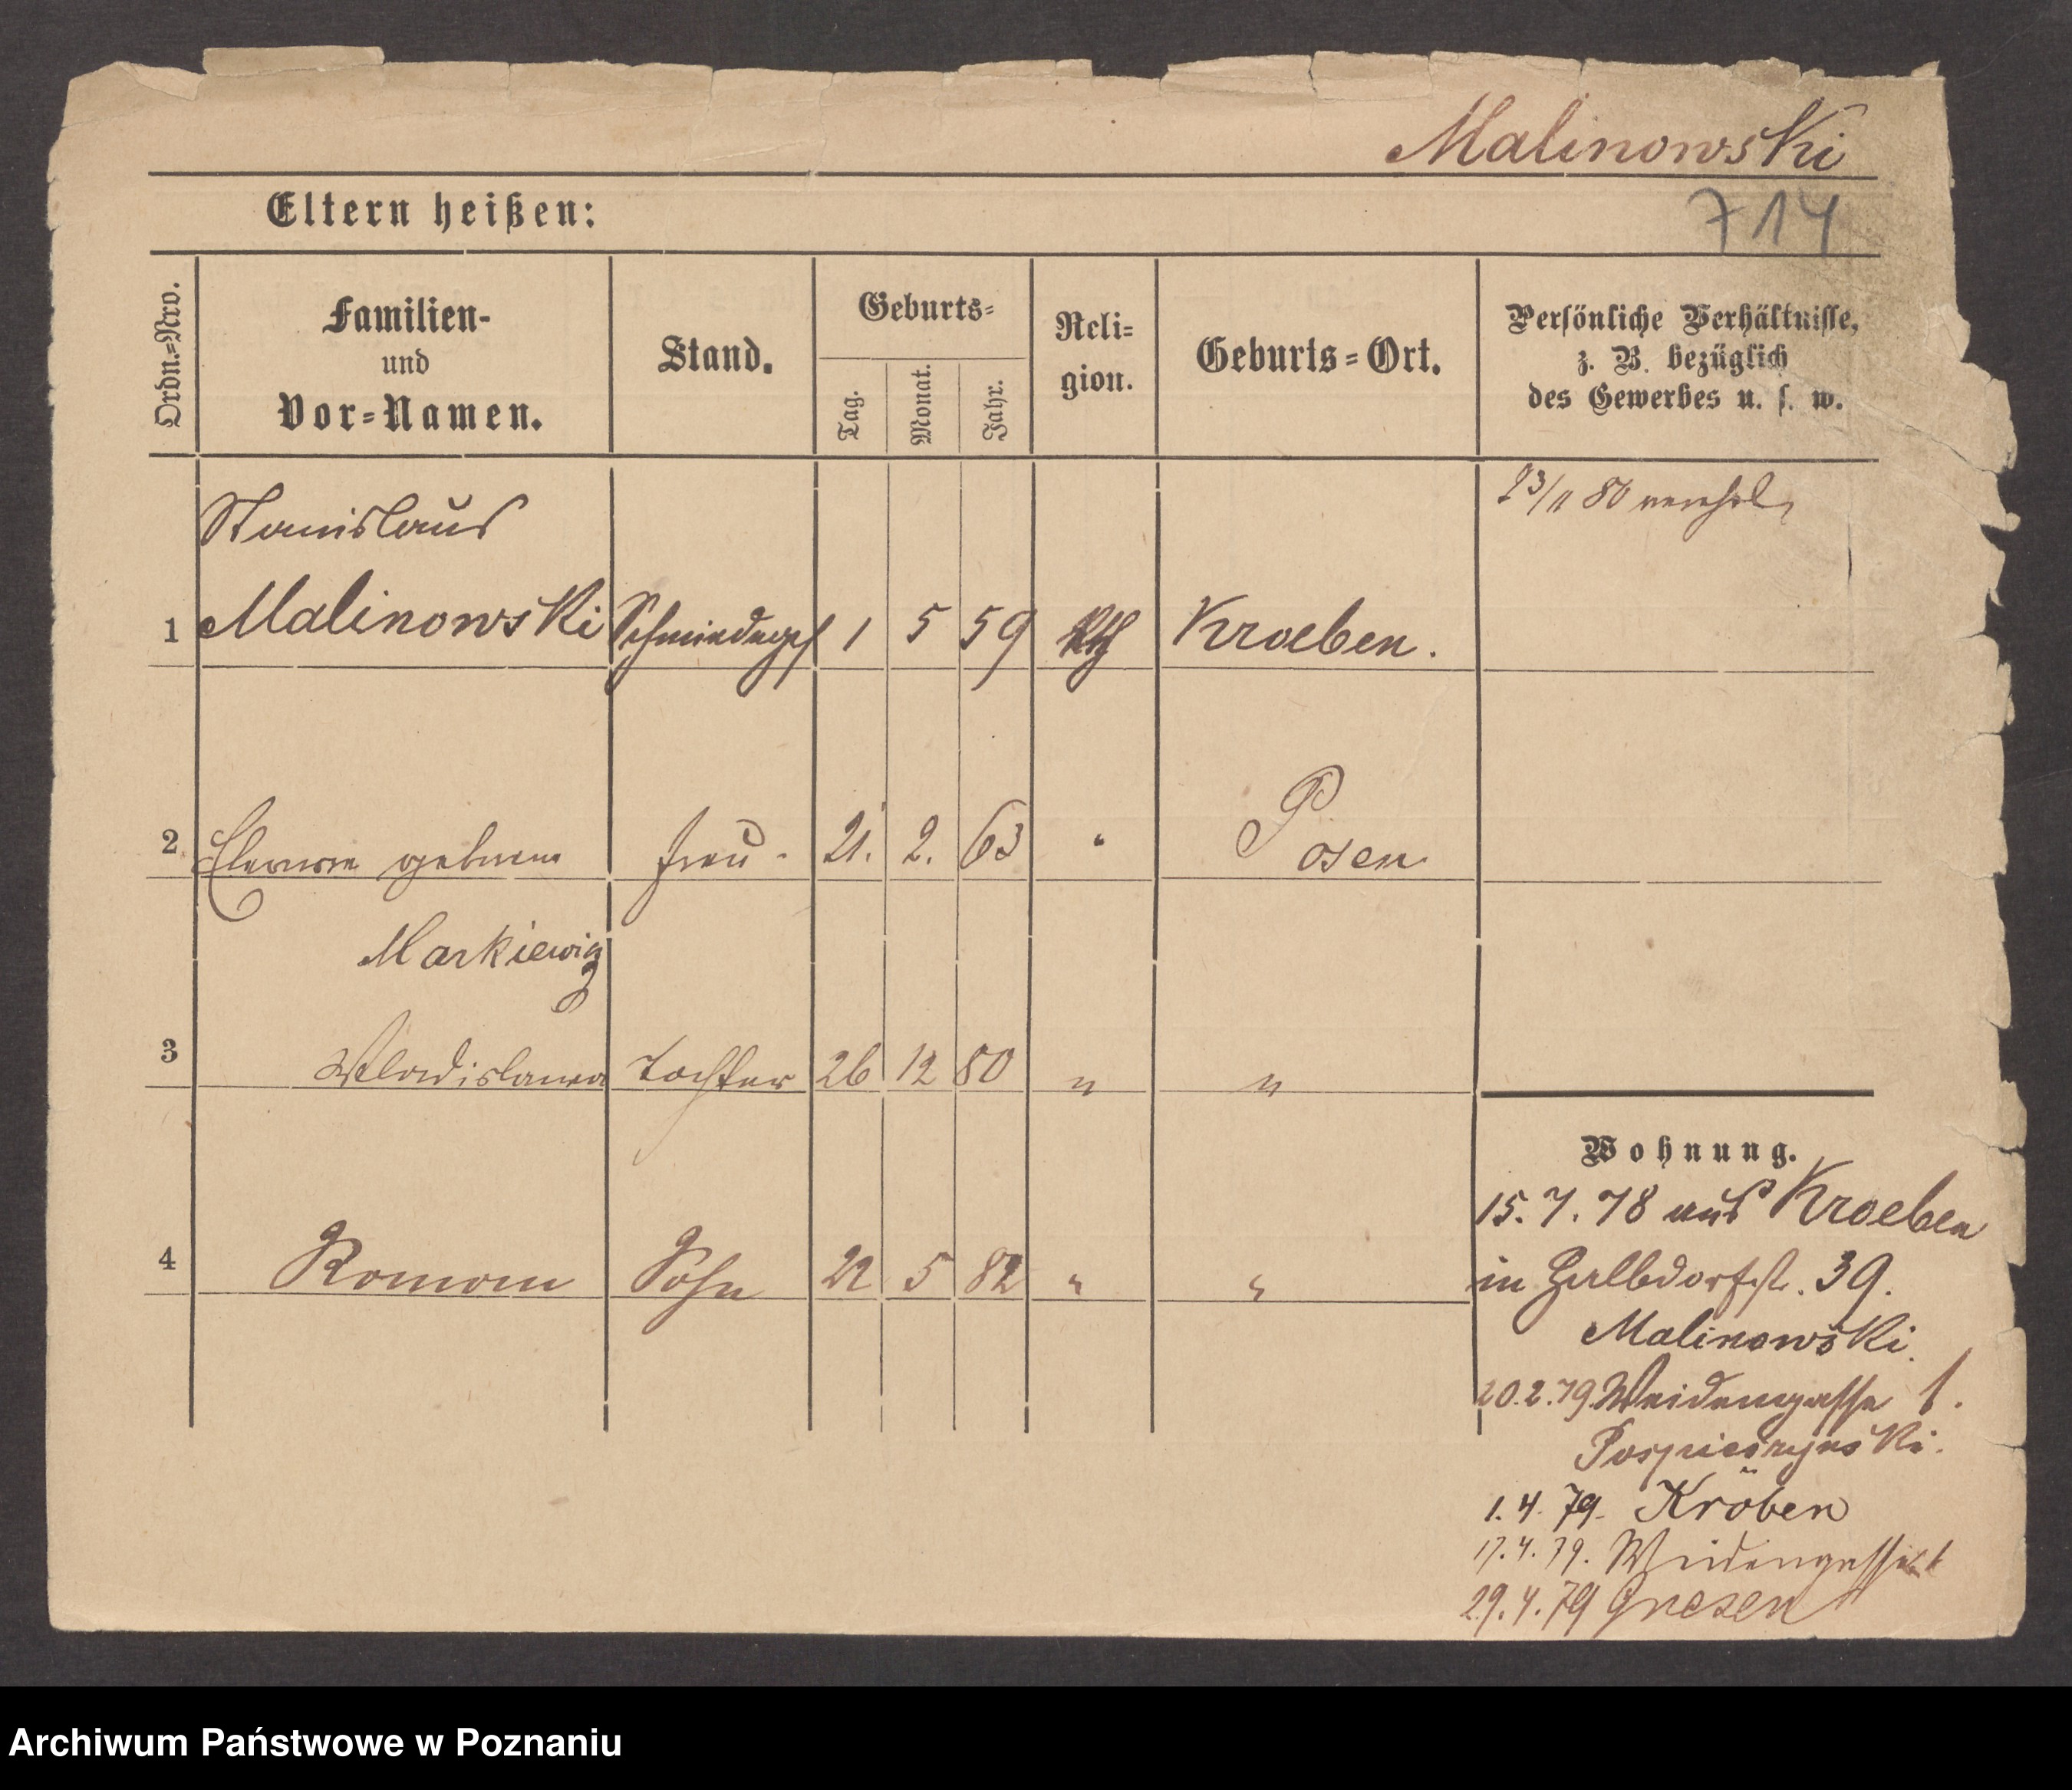 Malinowski
714
Eltern heißen:
Ordn.=Nro.
Familien-
und
Vor=Namen.
Stand.
Geburts=
Tag.
Monat.
Jahr.
Reli=
gion.
Geburts=Ort.
Persönliche Verhältnisse,
z. B. bezüglich
des Gewerbes u. s. w.
23/11 80 verehel.
Stanislaus
1 Malinowski Schmiedeges 1 5 59 Kth Kroeben.
2 geborene Frau. 21. 2. 63 " Posen
Markiewicz
3 Wladislawa Tochter 26 12 80 " "
4 Roman Sohn 22 5 82 " "
Wohnung.
15. 7. 78 aus Kroeben
in Halbdorfstr. 39.
Malinowski.
20.2.79 Weidengasse 1.
1. 4. 79. Kröben
17. 4. 79. Weidengasse 1
29. 4. 79 Gnesen
Archiwum Państwowe w Poznaniu